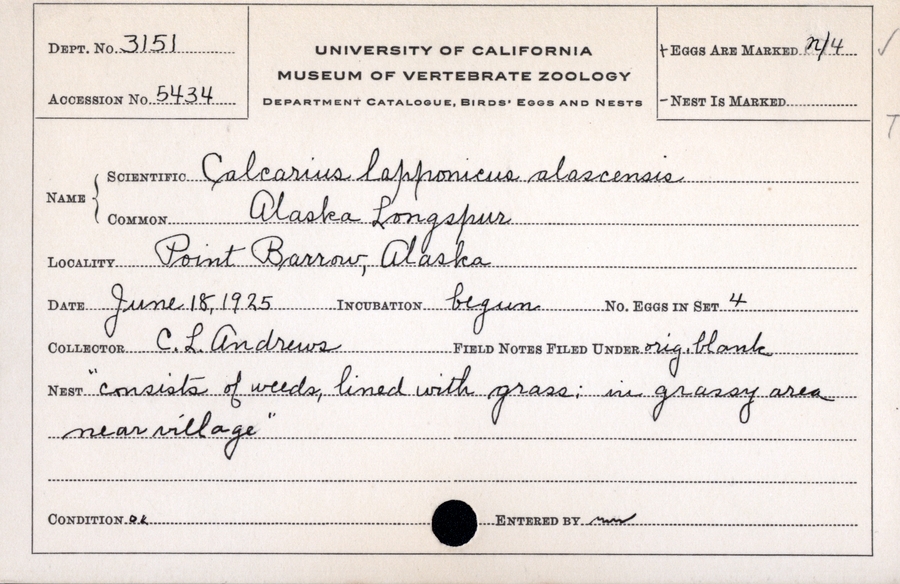 DEPT. No. 3151
ACCESSION No. 5434
UNIVERSITY OF CALIFORNIA
MUSEUM OF VERTEBRATE ZOOLOGY
DEPARTMENT CATALOGUE, BIRDS' EGGS AND NESTS
+ EGGS ARE MARKED n/4 ✓
- NEST IS MARKED T
NAME { SCIENTIFIC Calcarius lapponicus alascensis
COMMON Alaska Longspur
LOCALITY Point Barrow, Alaska
DATE June 18, 1925 INCUBATION begun No. EGGS IN SET 4
COLLECTOR C. L. Andrews FIELD NOTES FILED UNDER orig. blank
NEST "consists of weeds, lined with grass; in grassy area
near village"
CONDITION ok ENTERED BY